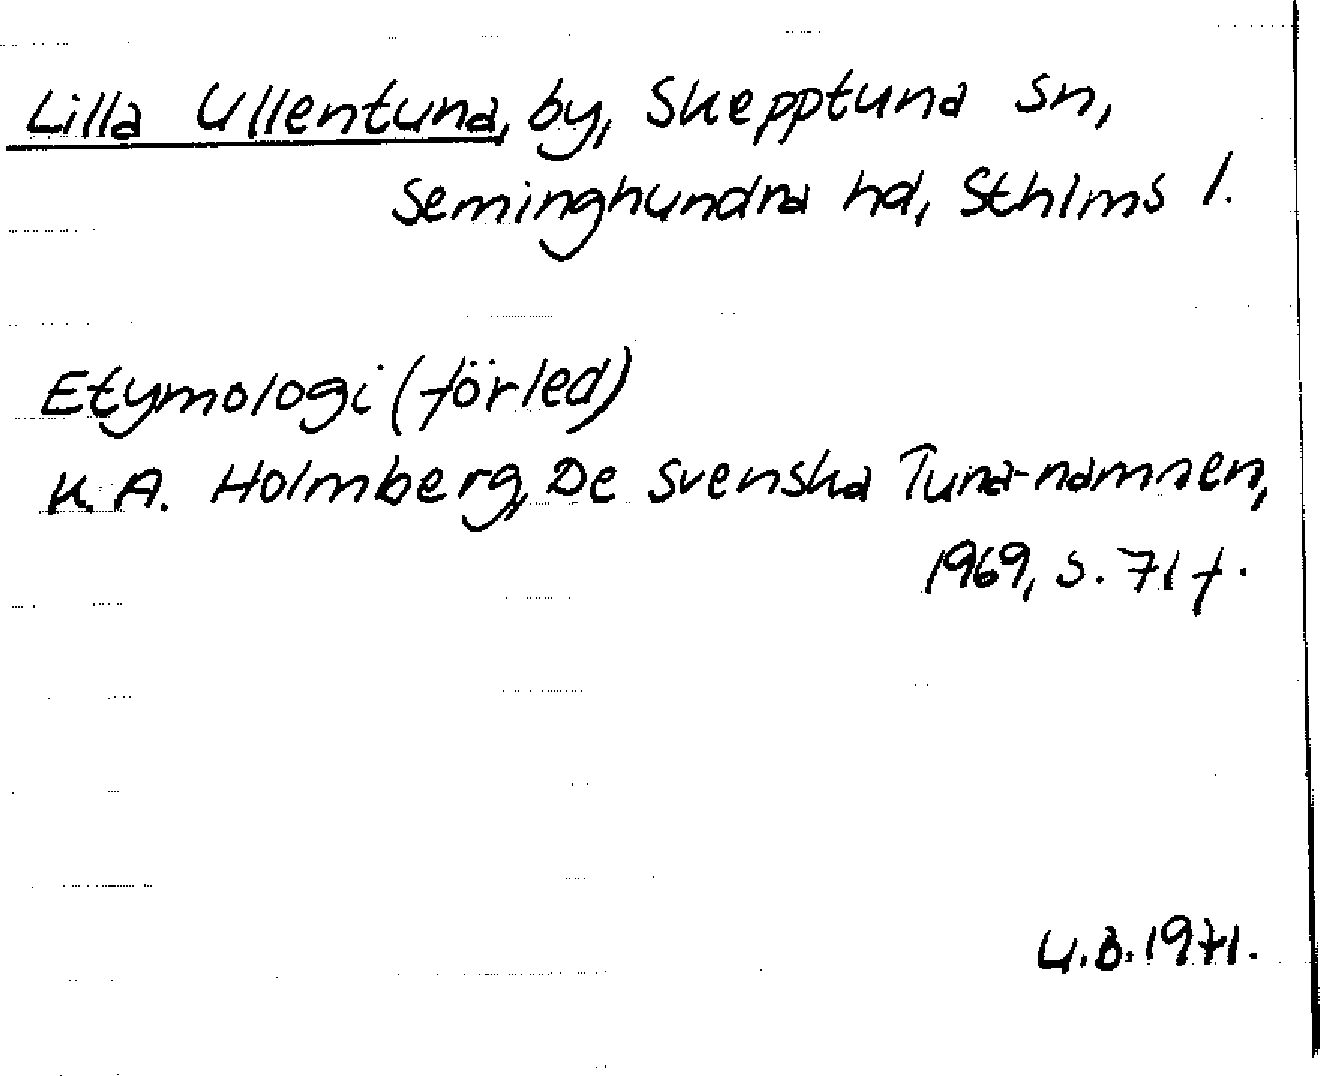 Lilla Ullentuna, by, Skepptuna sn,
Seminghundra hd, Sthlms l.
Etymologi (förled)
K. A. Holmberg, De svenska Tuna-namnen,
1969, s. 71 f.
U.B. 1971.